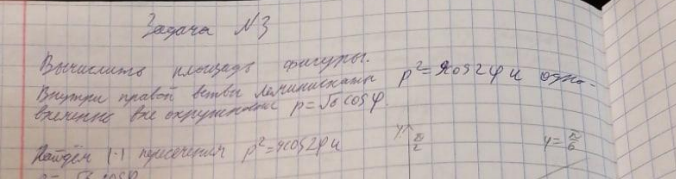 Задача N3
Вычислить площадь фигуры.
Внутри правой ветви Лемнискаты ρ²=9cos2φ и одно-
временно вне окружности ρ=√6cosφ.
Найдём (·) пересечения ρ²=9cos2φ и
y
π/2
φ=π/6